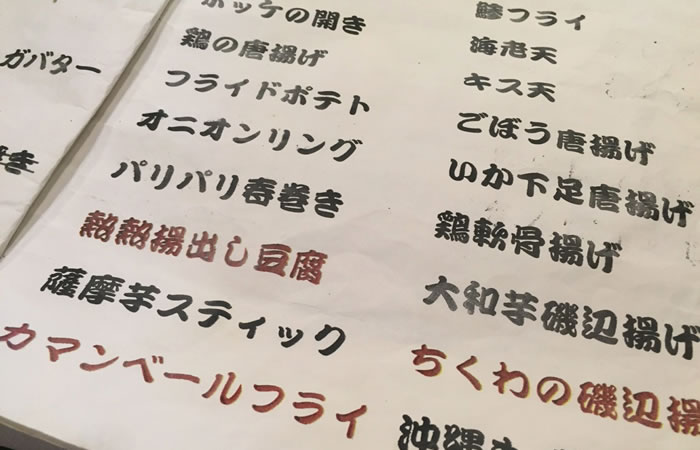 ガバター
き
ホッケの開き
鶏の唐揚げ
フライドポテト
オニオンリング
パリパリ春巻き
熱熱揚出し豆腐
薩摩芋スティック
カマンベールフライ
鯵フライ
海老天
キス天
ごぼう唐揚げ
いか下足唐揚げ
鶏軟骨揚げ
大和芋磯辺揚げ
ちくわの磯辺揚
沖縄